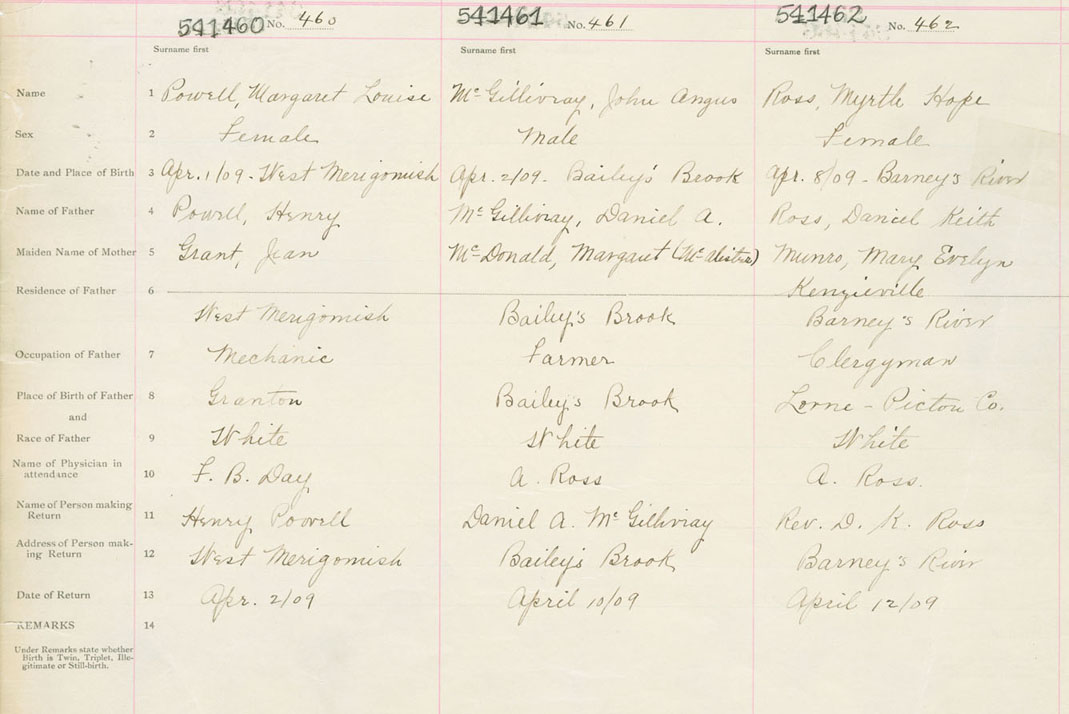 541460 No. 460 541461 No. 461 541462 No. 462
Surname first Surname first Surname first
Name 1 Powell, Margaret Louise McGillivray, John Angus Ross, Myrtle Hope
Sex 2 Female Male Female
Date and Place of Birth 3 Apr. 1/09 - West Merigomish Apr. 2/09 - Bailey's Brook Apr. 8/09 - Barney's River
Name of Father 4 Powell, Henry McGillivray, Daniel A. Ross, Daniel Keith
Maiden Name of Mother 5 Grant, Jean McDonald, Margaret Munro, Mary Evelyn
Residence of Father 6 Kenzieville
West Merigomish Bailey's Brook Barney's River
Occupation of Father 7 Mechanic Farmer Clergyman
Place of Birth of Father 8 Granton Bailey's Brook Lorne - Pictou Co.
and
Race of Father 9 White White White
Name of Physician in
attendance 10 F. B. Day A. Ross A. Ross.
Name of Person making
Return 11 Henry Powell Daniel A. McGillivray Rev. D. K. Ross
Address of Person mak-
ing Return 12 West Merigomish Bailey's Brook Barney's River
Date of Return 13 Apr. 2/09 April 10/09 April 12/09
REMARKS 14
Under Remarks state whether
Birth is Twin, Triplet, Ille-
gitimate or Still-birth.